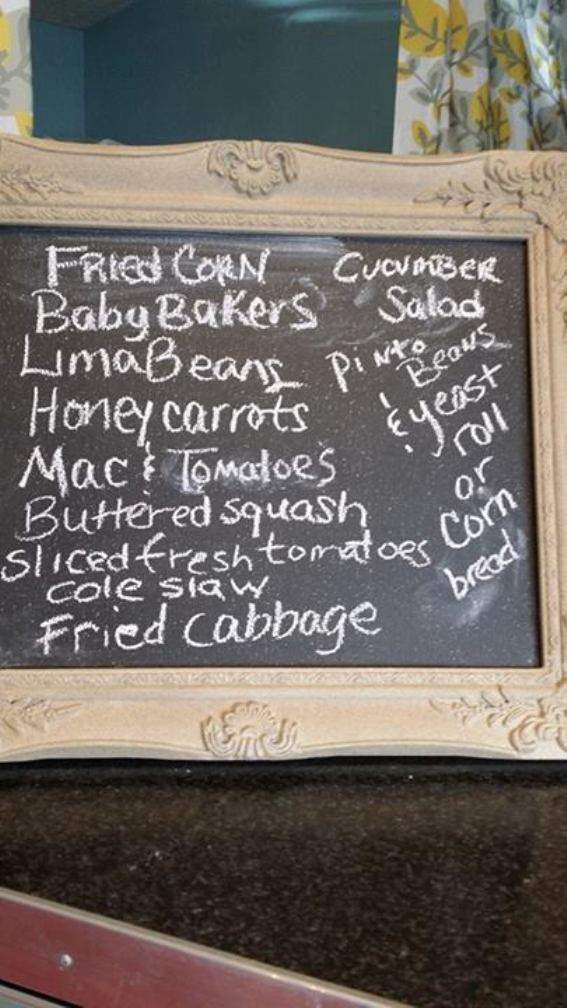 Fried Corn
Baby Bakers
Lima Beans
Honey carrots
Mac & Tomatoes
Buttered squash
sliced fresh tomatoes
cole slaw
Fried Cabbage
Cucumber
Salad
Pinto
Beans
& yeast
roll
or
Corn
bread